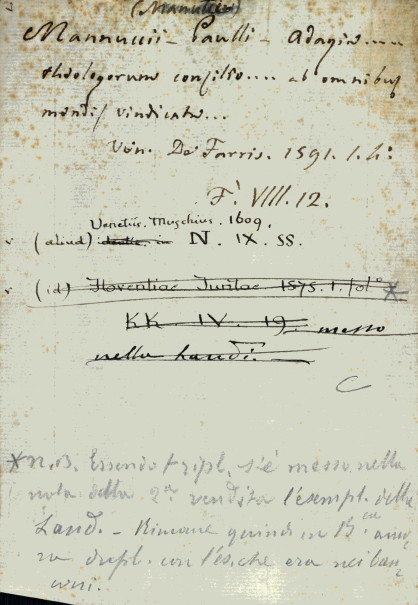 (Manutius)
Mannuccii - Paulli - Adagia ....
theologorum consilio .... ab omnibus
mendis vindicata...
Ven. De Farris. 1591. 1. 4:
F. VIII. 12.
Venetiis. Muschius. 1609.
(aliud) in N. IX. 55.
(id) Florentiae Juntae 1575. 1. fol° *
KK IV. 19. messo
nella Landi.
C
* N. B. Essendo tripl. s'è messo nella
nota della 2ª vendita l'esempl. della
Land. - Rimane quindi in Bcª anco
ra dupl. con l'es. che era nei ban
coni.